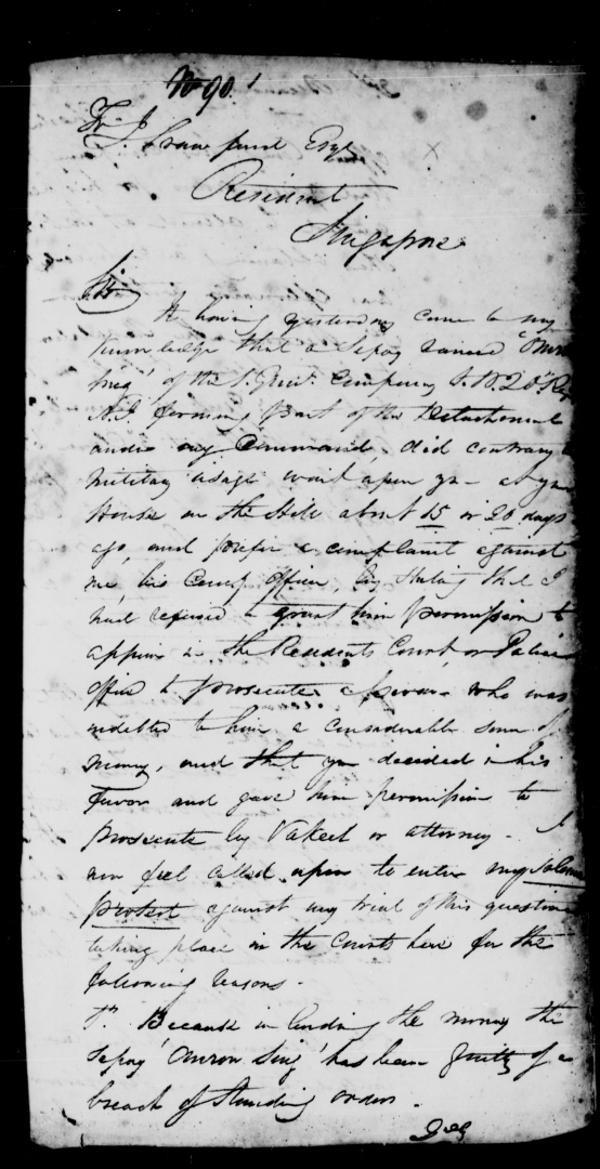 No 90.
To J. Crawfurd Esqr
Resident
Singapore
Sir
It having yesterday come to my
knowledge that a Sepoy named
Sing' of the Company 20th Reg
N.I. forming part of the Detachment
under my Command, did contrary to
military usage wait upon you at your
House on the Hill about 15 or 20 days
ago, and prefer a complaint against
me, his Comg Officer, by stating that I
had refused to grant him permission to
appear in the Residents Court or Police
Office to prosecute a person who was
indebted to him a considerable sum of
money, and that you decided in his
favor and gave him permission to
prosecute by Vakeel or attorney - I
now feel called upon to enter my solemn
protest against any trial of this question
taking place in the Courts here for the
following reasons -
1st. Because in lending the money the
Sepoy 'Omron Sing' has been guilty of a
breach of Standing orders.